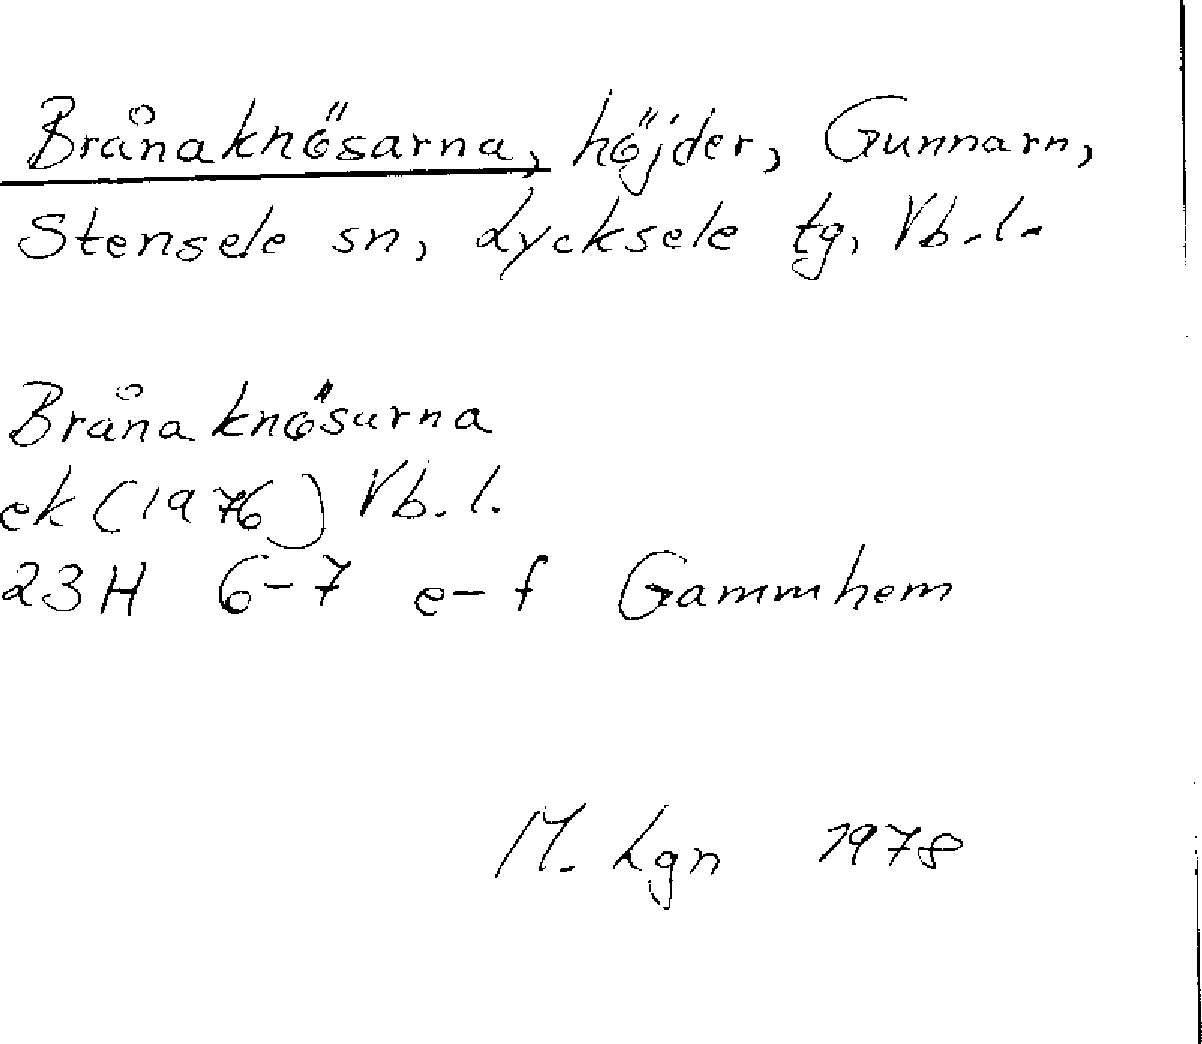 Brånaknösarna, höjder, Gunnarn,
Stensele sn, Lycksele tg, Vb.l.
Brånaknösarna
ek (1976) Vb.l.
23H 6-7 e-f Gammhem
M. Lgn 1978